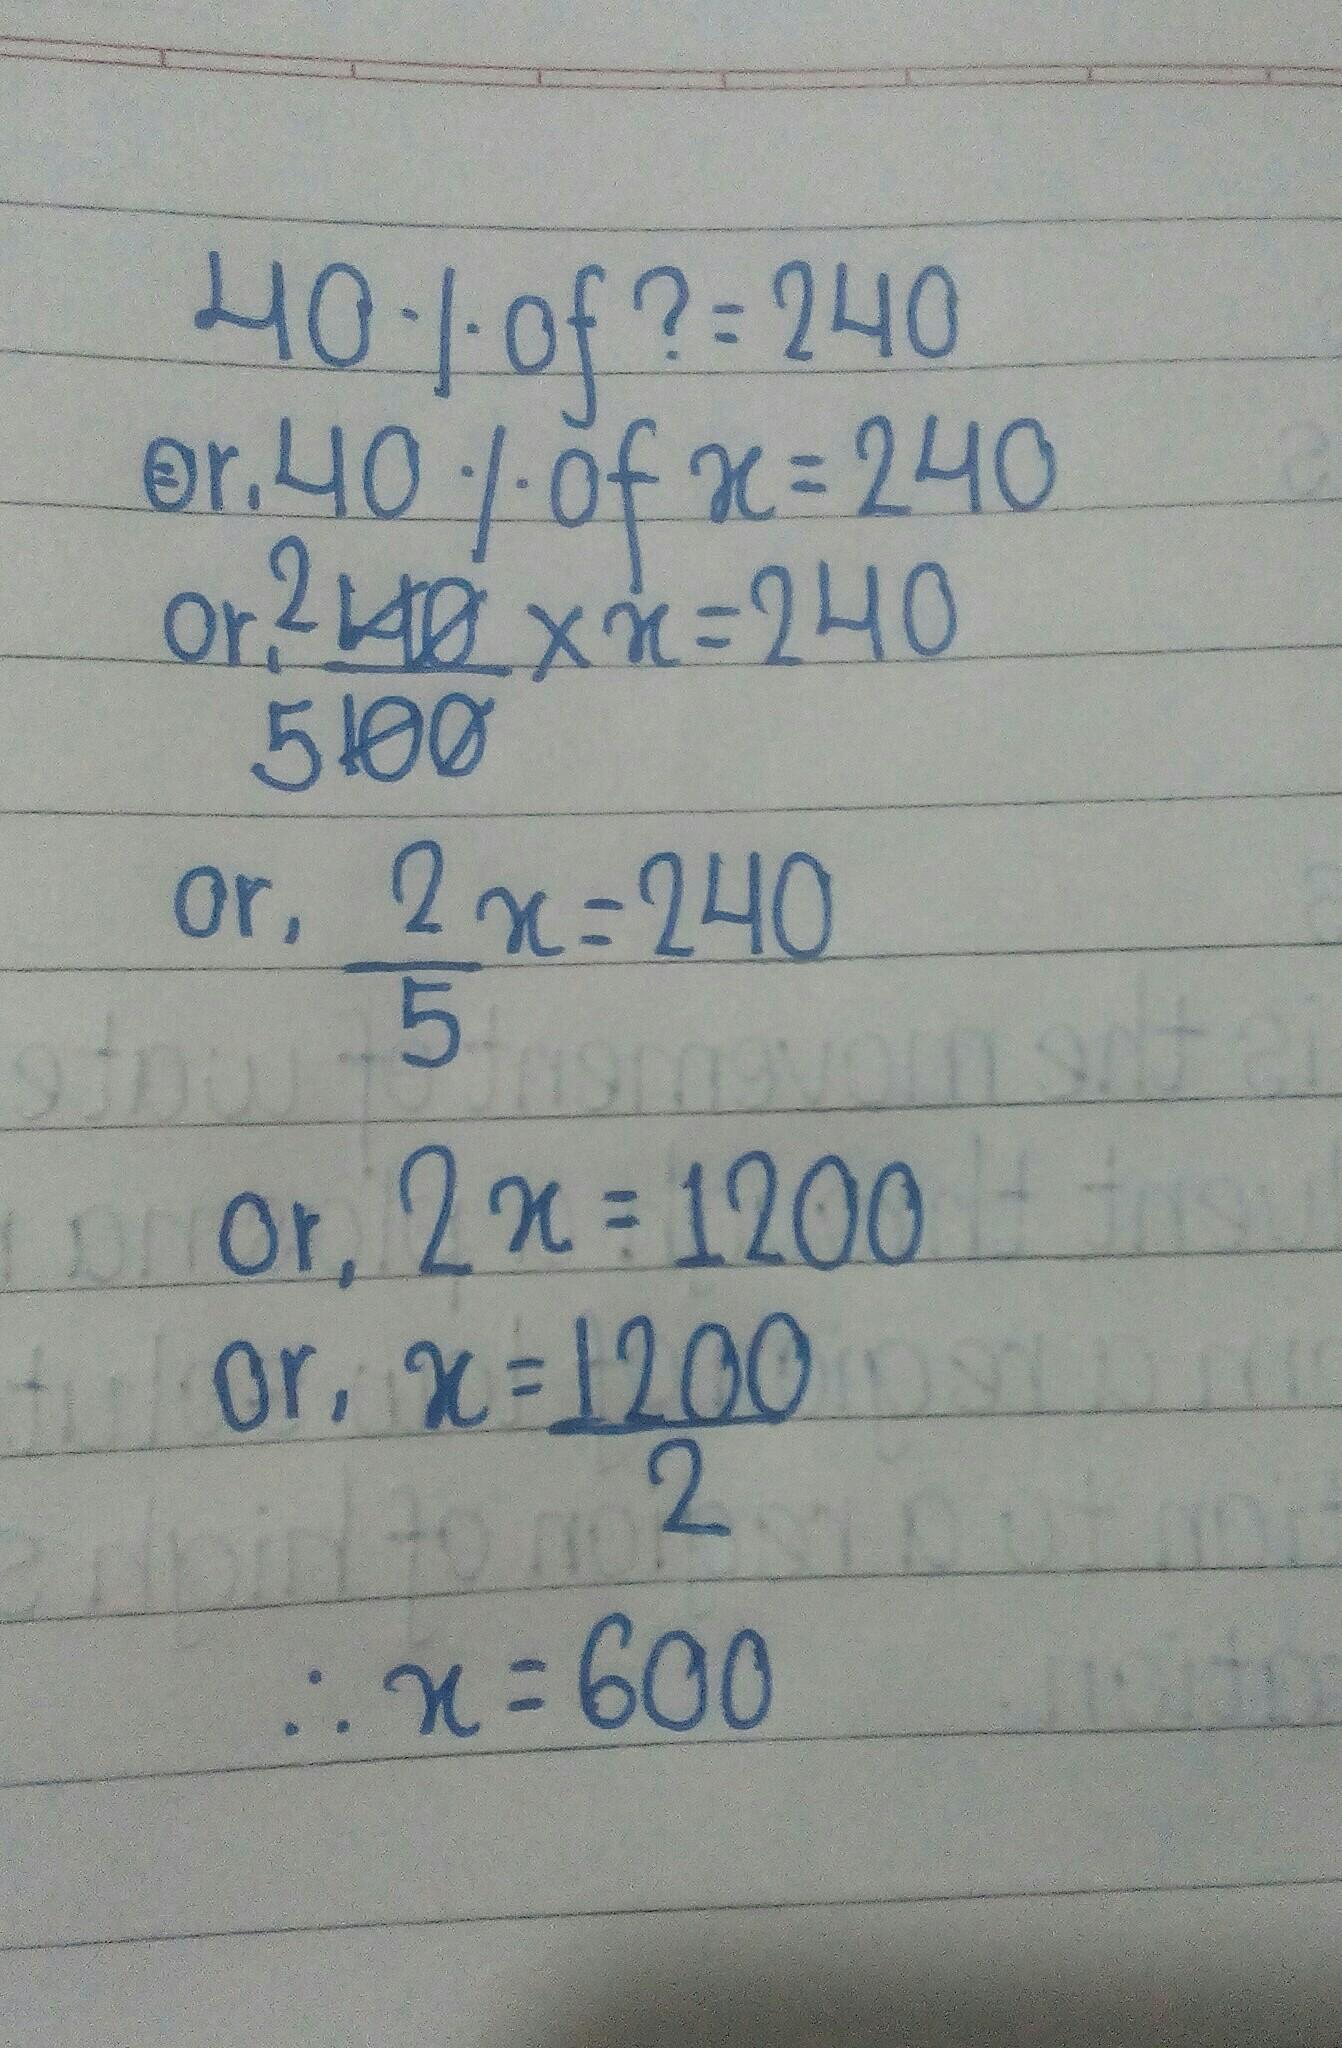 40% of ? = 240
or, 40% of x = 240
or, 2 40/5 100 × x = 240
or, 2/5 x = 240
or, 2x = 1200
or, x = 1200/2
∴ x = 600